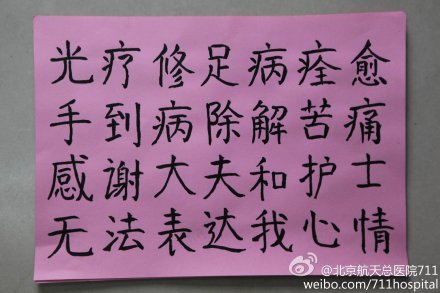 光疗修足病痊愈
手到病除解苦痛
感谢大夫和护士
无法表达我心情
@北京航天总医院711
weibo.com/711hospital